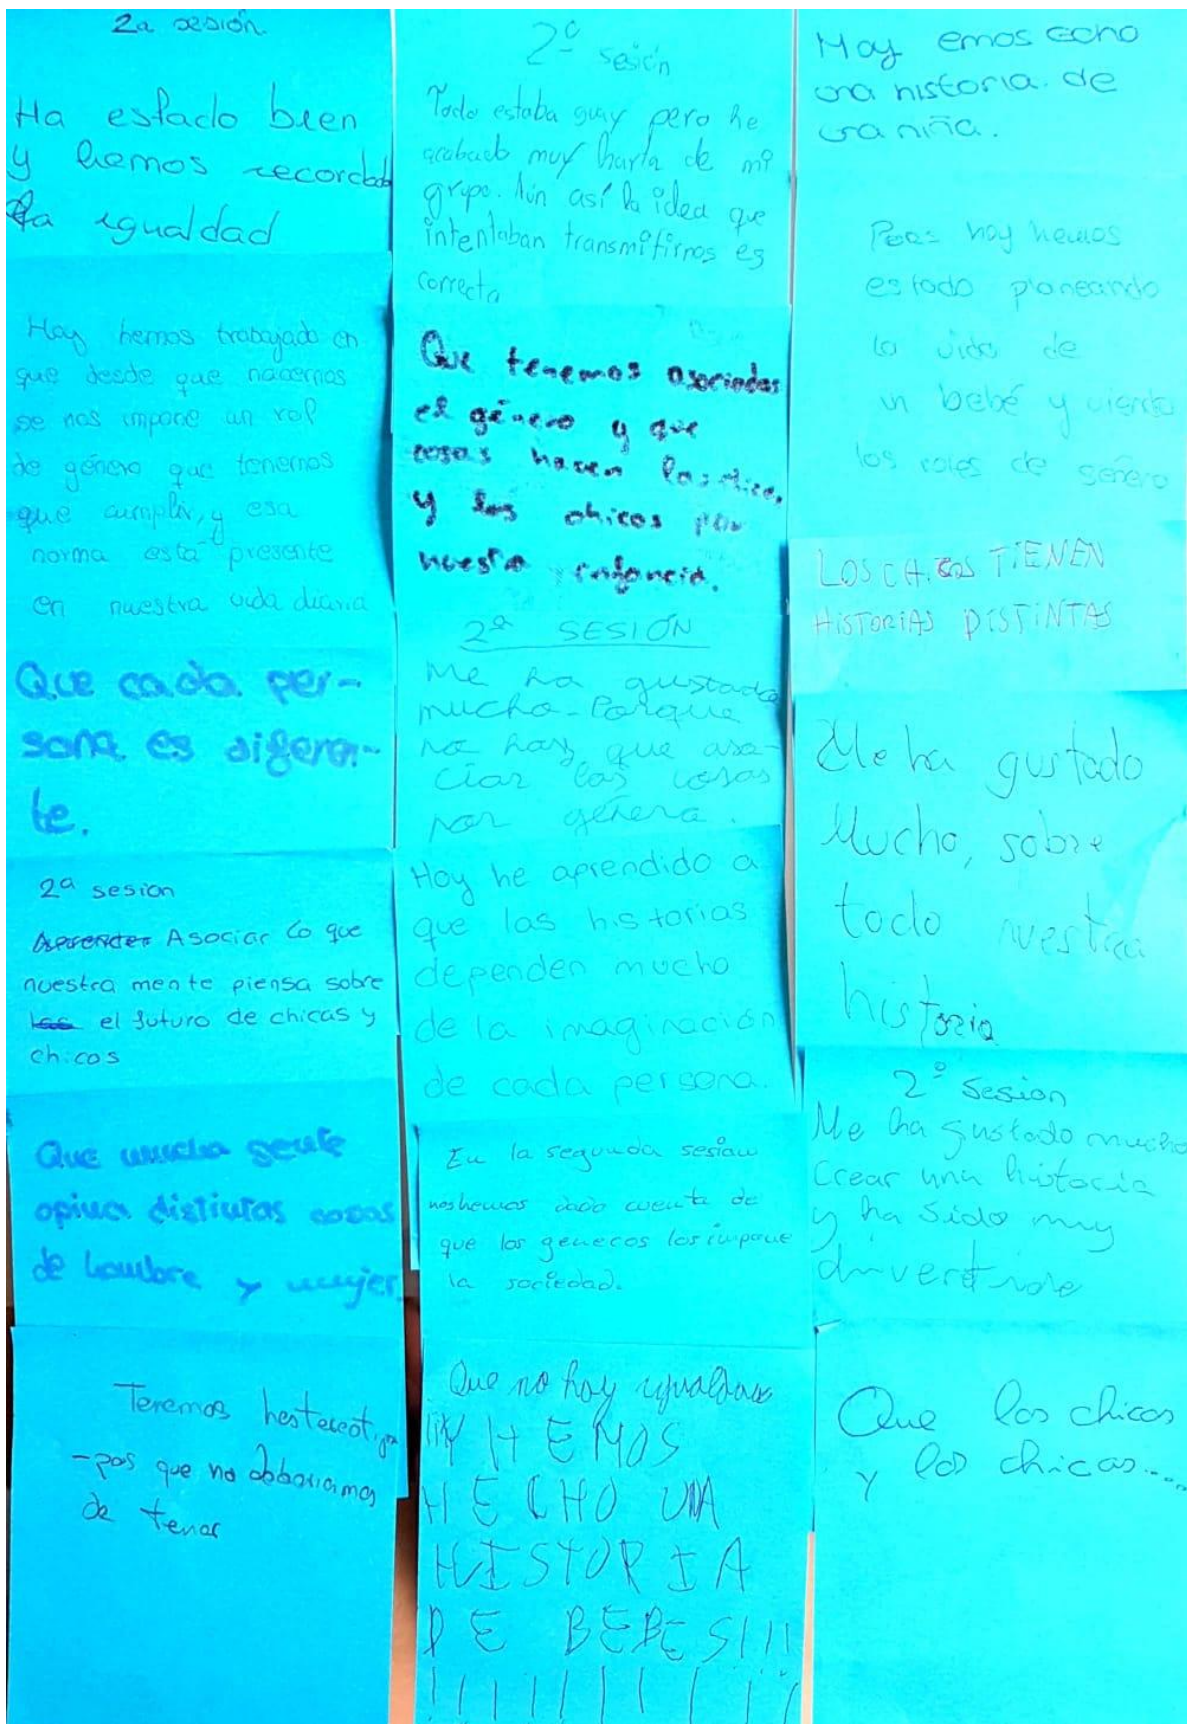 2a sesión.
Ha estado bien
y hemos recordado
la igualdad
Hoy hemos trabajado en
que desde que nacemos
se nos impone un rol
de género que tenemos
que cumplir, y esa
norma está presente
en nuestra vida diaria
Que cada per-
sona es diferen-
te.
2ª sesion
Aprender Asociar lo que
nuestra mente piensa sobre
las el futuro de chicas y
chicos
Que mucha gente
opina distintas cosas
de hombre y mujer.
Tenemos hestereoti
-pos que no deberiamos
de tener
2º sesión
Todo estaba guay pero he
acabado muy harta de mi
grupo. Aún así la idea que
intentaban transmitirnos es
correcta
Que tenemos asociadas
el género y que
cosas hacen las chicas
y los chicos por
nuestra infancia.
2ª SESIÓN
Me ha gustado
mucho. Porque
no hay que aso-
ciar las cosas
por género.
Hoy he aprendido a
que las historias
dependen mucho
de la imaginación
de cada persona.
En la segunda sesion
nos hemos dado cuenta de
que los géneros los impone
la sociedad.
Que no hay igualdad
¡¡¡Y HEMOS
HECHO UNA
HISTORIA
DE BEBES!!!
!!!!!!!!!
Hoy emos echo
una historia. de
una niña.
Pues hoy hemos
estado planeando
la vida de
un bebé y viendo
los roles de género
LOS CHICOS TIENEN
HISTORIAS DISTINTAS
Me ha gustado
Mucho, sobre
todo nuestra
historia
2º Sesion
Me ha gustado mucho
Crear una historia
y ha sido muy
Que los chicos
y las chicas....